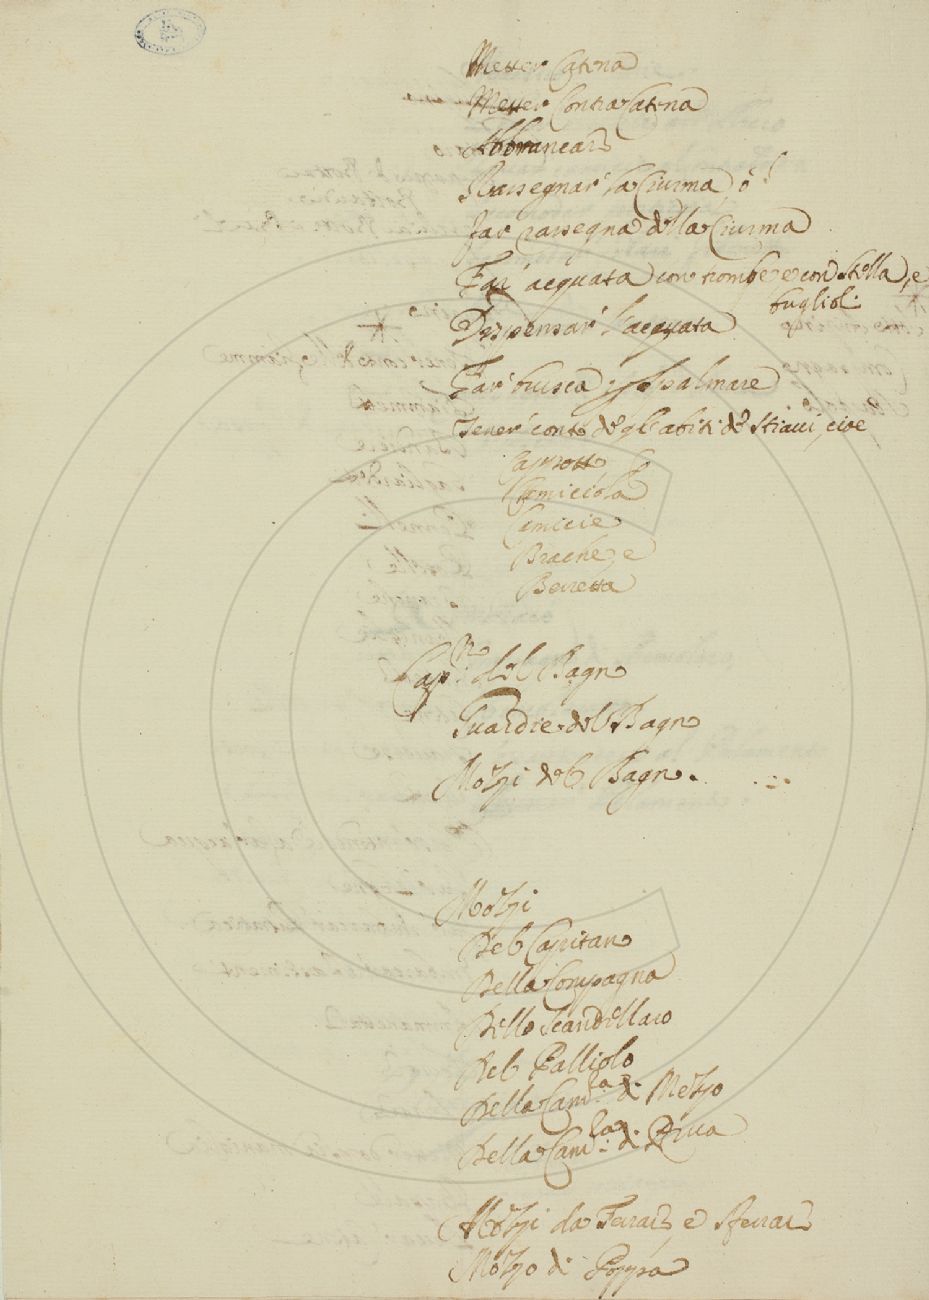 Metter Catena
Metter Contra Catena
Abbrancar
Rassegnar la Ciurma ó
far rassegna della Ciurma
Far acquata con trombe e con Stella, e
buglioli
Despensar l'acquata
Far brusca, e spalmare
Tener conto degl'abiti de Stiavi, cioe
Capotto
Camiciola
Camicie
Brache, e
Berretta
Capno del Bagno
Guardie del Bagno
Mozzi del Bagno.
Mozzi
Del Capitano
Della Compagna
Dello Scandellaro
Del Palliolo
Della Camra di Mezzo
Della Camra di Prua
Mozzi da Ferrar, e sferrar
Mozzo di Poppa